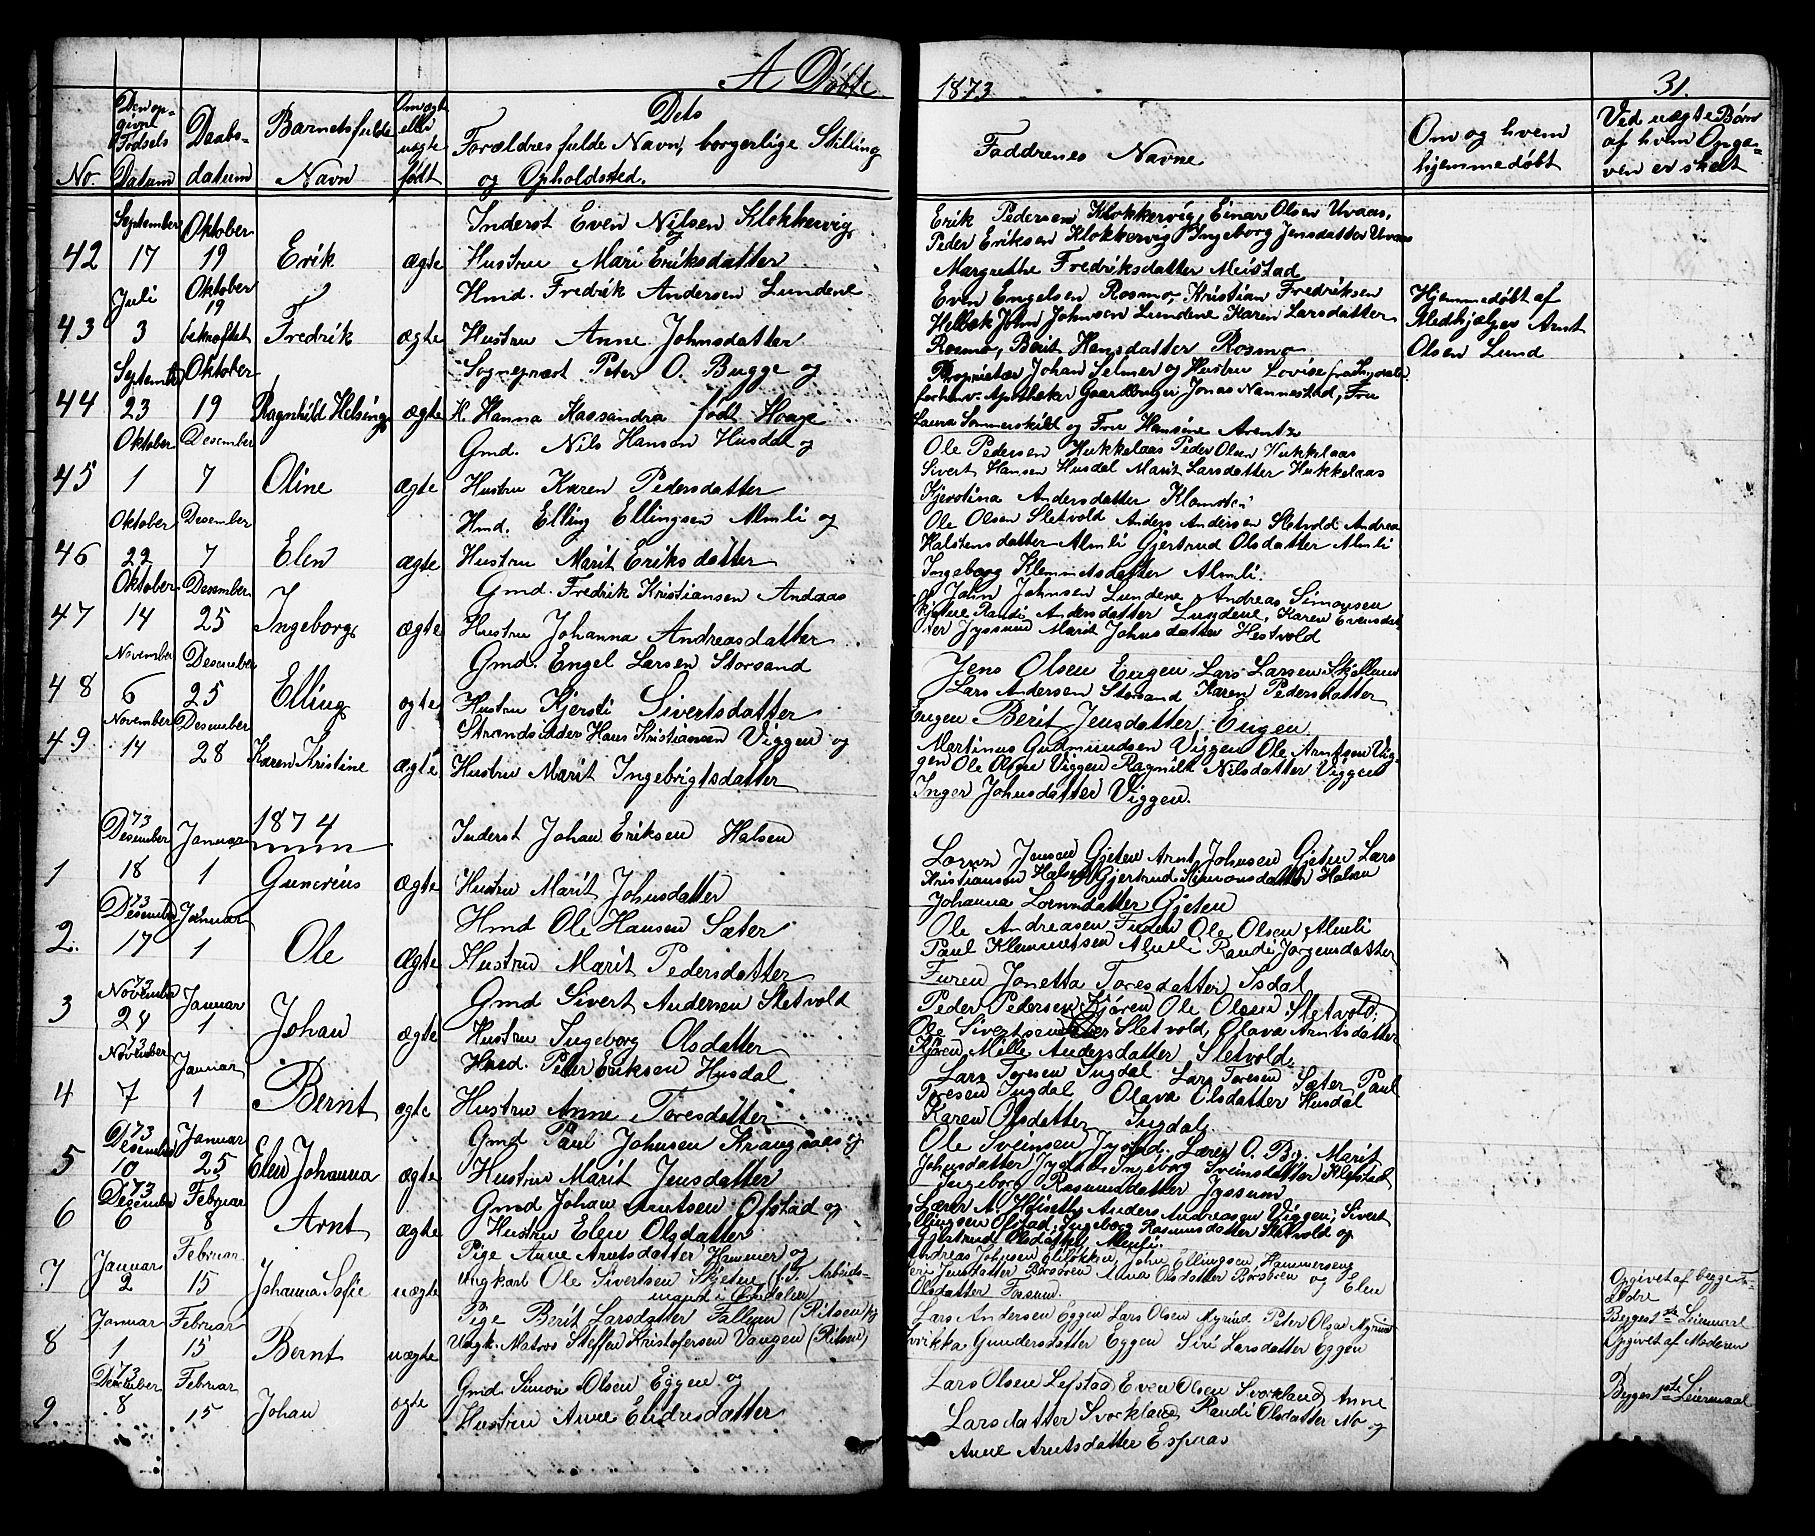 A Døbte
1873
31.
No.
Den opgivne Fødsels Datum
Daabsdatum
Barnets fulde Navn
Om ægte eller uægte født
Dets Forældres fulde Navn, borgerlige Stilling og Opholdssted.
Faddrenes Navne
Om og hvem hjemmedøbt
Ved uægte Børn af hvem Opgaven er skeet
42 September 17 Oktober 19 Erik ægte
Inderst Even Nilsen Klokkervig
Hustru Mari Eriksdatter
Erik Pedersen Klokkervig, Einar Olsen Uvaas,
Peder Eriksen Klokkervig Ingeborg Jensdatter Uvaas
Margrethe Fredriksdatter Meistad
43 Juli 3 Oktober 19 bekræftet Fredrik ægte
Hmd. Fredrik Andersen Lundene
Hustru Anne Johnsdatter
Even Engelsen Rosmo, Kristian Fredriksen
Helbæk John Johnsen Lundene Karen Larsdatter
Rosmo, Berit Hansdatter Rosmo
Hjemmedøbt af
Medhjælper Arnt
Olsen Lund
44 September 23 Oktober 19 Ragnhild Helsing ægte
Sognepræst Peter O. Bugge og
H. Hanna Kassandra født Hoage
Proprietær Johan Selmer og Hustru Lovise fra
Apotheker Jonas Nannestad, Fru
Laura Sommerskild og Fru Hansine Arentz
45 Oktober 1 Desember 7 Oline ægte
Gmd. Nils Hansen Husdal og
Hustru Karen Pedersdatter
Ole Pedersen Hukkelaas Peder Olsen Hukkelaas
Sivert Hansen Husdal Marit Larsdatter Hukkelaas
Andersdatter
46 Oktober 22 Desember 7 Elen ægte
Hmd. Elling Ellingsen Almli og
Hustru Marit Eriksdatter
Ole Olsen Sletvold Anders Andersen Sletvold Andrea
Halstensdatter Almli Gjertrud Olsdatter Almli
Ingeborg Klemmetsdatter Almli.
47 Oktober 14 Desember 25 Ingeborg ægte
Gmd. Fredrik Kristiansen Andaas
Hustru Johanna Andreasdatter
John Johnsen Lundene Andreas Simonsen
Randi Andersdatter Lundene, Karen
Marit Johnsdatter Hestvold
48 November 6 Desember 25 Elling ægte
Gmd. Engel Larsen Storsand
Hustru Kjersti Sivertsdatter
Jens Olsen Eugen Lars Larsen
Lars Andersen Storsand Karen Pedersdatter
Eugen Berit Jensdatter, Eugen
49 November 14 Desember 28 Karen Kristine ægte
Strandsidder Hans Kristiansen Viggen og
Hustru Marit Ingebrigtsdatter
Martinus Gudmundsen Viggen Ole Arntsen Viggen
Ole Olsen Viggen Ragnild Nilsdatter Viggen
Inger Johnsdatter Viggen.
1874
1 73 Desember 18 Januar 1 Gunerius ægte
Inderst Johan Eriksen Halsen
Hustru Marit Johnsdatter
Jensen Gjeten Arnt Johnsen Gjeten Lars
Kristiansen Halsen Gjertrud Simonsdatter Halsen
Johanna Gjeten
2. 73 Desember 17 Januar 1 Ole ægte
Hmd Ole Hansen Sæter
Hustru Marit Pedersdatter
Ole Andreasen Furen Ole Olsen Almli
Paul Klemmetsen Almli Randi Jørgensdatter
Furen Jonetta Toresdatter Isdal
3 73 November 24 Januar 1 Johan ægte
Gmd Sivert Andersen Sletvold
Hustru Ingeborg Olsdatter
Peder Pedersen Kjøren Ole Olsen Sletvold,
Ole Sivertsen Sletvold, Olava Arntsdatter
Kjøren Mille Andersdatter Sletvold.
4 73 November 7 Januar 1 Bernt ægte
Hmd. Peter Eriksen Husdal
Hustru Anne Toresdatter
Lars Toresen Ingdal Lars Toresen Sæter Paul
Toresen Ingdal Olava Olsdatter Husdal
Karen Olsdatter Ingdal
5 73 Desember 10 Januar 25 Elen Johanna ægte
Gmd Paul Johnsen Krangsaas og
Hustru Marit Jensdatter
Ole Sveinsen Lærer O. By. Marit
Johnsdatter Ingeborg Sveinsdatter Klefstad
Ingeborg Rasmusdatter Jyssum
6 73 Desember 6 Februar 8 Arnt ægte
Gmd Johan Arntsen Ofstad og
Hustru Elen Olsdatter
Lærer A. Høiseth, Anders Andreasen Viggen, Sivert
Ellingsen Ofstad, Ingeborg Rasmusdatter Sletvold og
Gjertrud Olsdatter Almli.
7 Januar 2 Februar 15 Johanna Sofie uægte
Pige Anne Arntsdatter Hammer og
Ungkarl Ole Sivertsen Skjetne (f. T. Arbeidsmand i Ørkdalen)
Andreas Johnsen John Ellingsen, Hammerseng
Jensdatter Børsøren Anna Olsdatter Børsøren og Elen
Olsdatter Fossum
Opgivet af begge Forældre
Begges 1ste Leiermaal
8 Januar 1 Februar 15 Bernt uægte
Pige Berit Larsdatter Fallein (Ritsen) og
Ungk. Matros Steffen Kristofersen Vangen (Ritsen)
Lars Andersen Eggen Lars Olsen Peter Olsen
Gundersdatter Eggen Siri Larsdatter Eggen
Opgivet af Moderen
Begges 1ste Leiermaal
9. 73 December 8 Februar 15 Johan ægte
Gmd. Simon Olsen Eggen og
Hustru Anne Endresdatter
Lars Olsen Lefstad, Even Olsen Svorkland, Anne
Larsdatter Svorkland Randi Olsdatter Mo og
Anne Arntsdatter Espaas